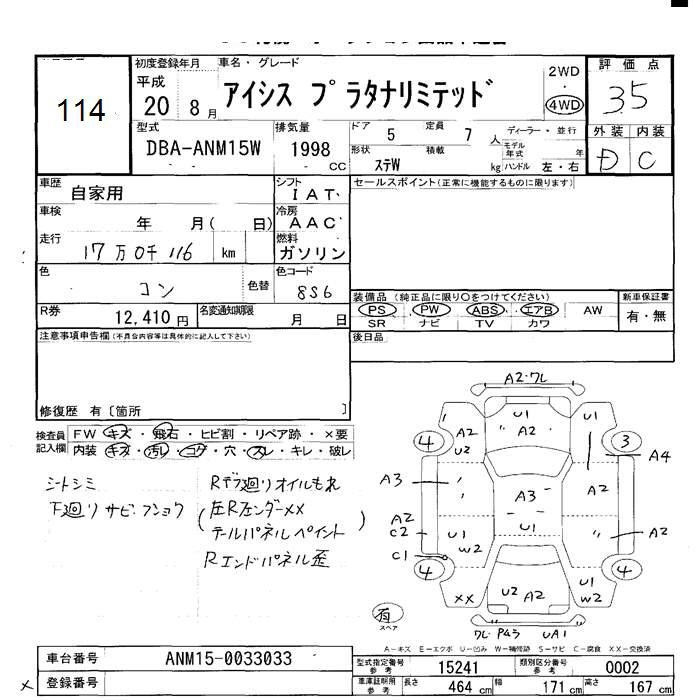 初度登録年月 車名・グレード 2WD 評価点
114 平成 20 8月 アイシス プラタナリミテッド ・ 4WD 35
型式 排気量 ドア 5 定員 7 人 ディーラー・並行 外装 内装
DBA-ANM15W 1998 CC 形状 ステW 積載 kg モデル年式 年 D C
ハンドル 左・右
車歴 自家用 シフト IAT セールスポイント(正常に機能するものに限ります)
車検 年 月( 日) 冷房 AAC
走行 17万0千116 km 燃料 ガソリン
色 コン 色替 色コード 8S6
装備品 (純正品に限り○をつけてください) 新車保証書
R券 12,410円 名変通知期限 月 日 PS PW ABS エアB AW 有・無
SR ナビ TV カワ
注意事項申告欄(不具合内容等は具体的に記入して下さい) 後日品
修復歴 有〔箇所 〕
検査員記入欄 FW キズ・飛石・ヒビ割・リペア跡・×要
内装 キズ・汚レ・コゲ・穴・スレ・キレ・破レ
シートシミ Rデフ廻りオイルもれ
下廻りサビ・フショク (左Rフェンダーxx
テールパネルペイント)
Rエンドパネル歪
A2・ワレ
A2 U2 U1 A2 U1
4 3
A4
A3 A3 A2
A2 C2 U1 W2 U1 A2
C1
4 4
xx U2 A2 U1 W2
有 スペア
ワレ UA1
A-キズ E-エクボ U-凹み W-補修跡 S-サビ C-腐食 XX-交換済
車台番号 ANM15-0033033 型式指定番号 参考 15241 類別区分番号 参考 0002
× 登録番号 車庫証明用 参考 長さ 464 cm 幅 171 cm 高さ 167 cm